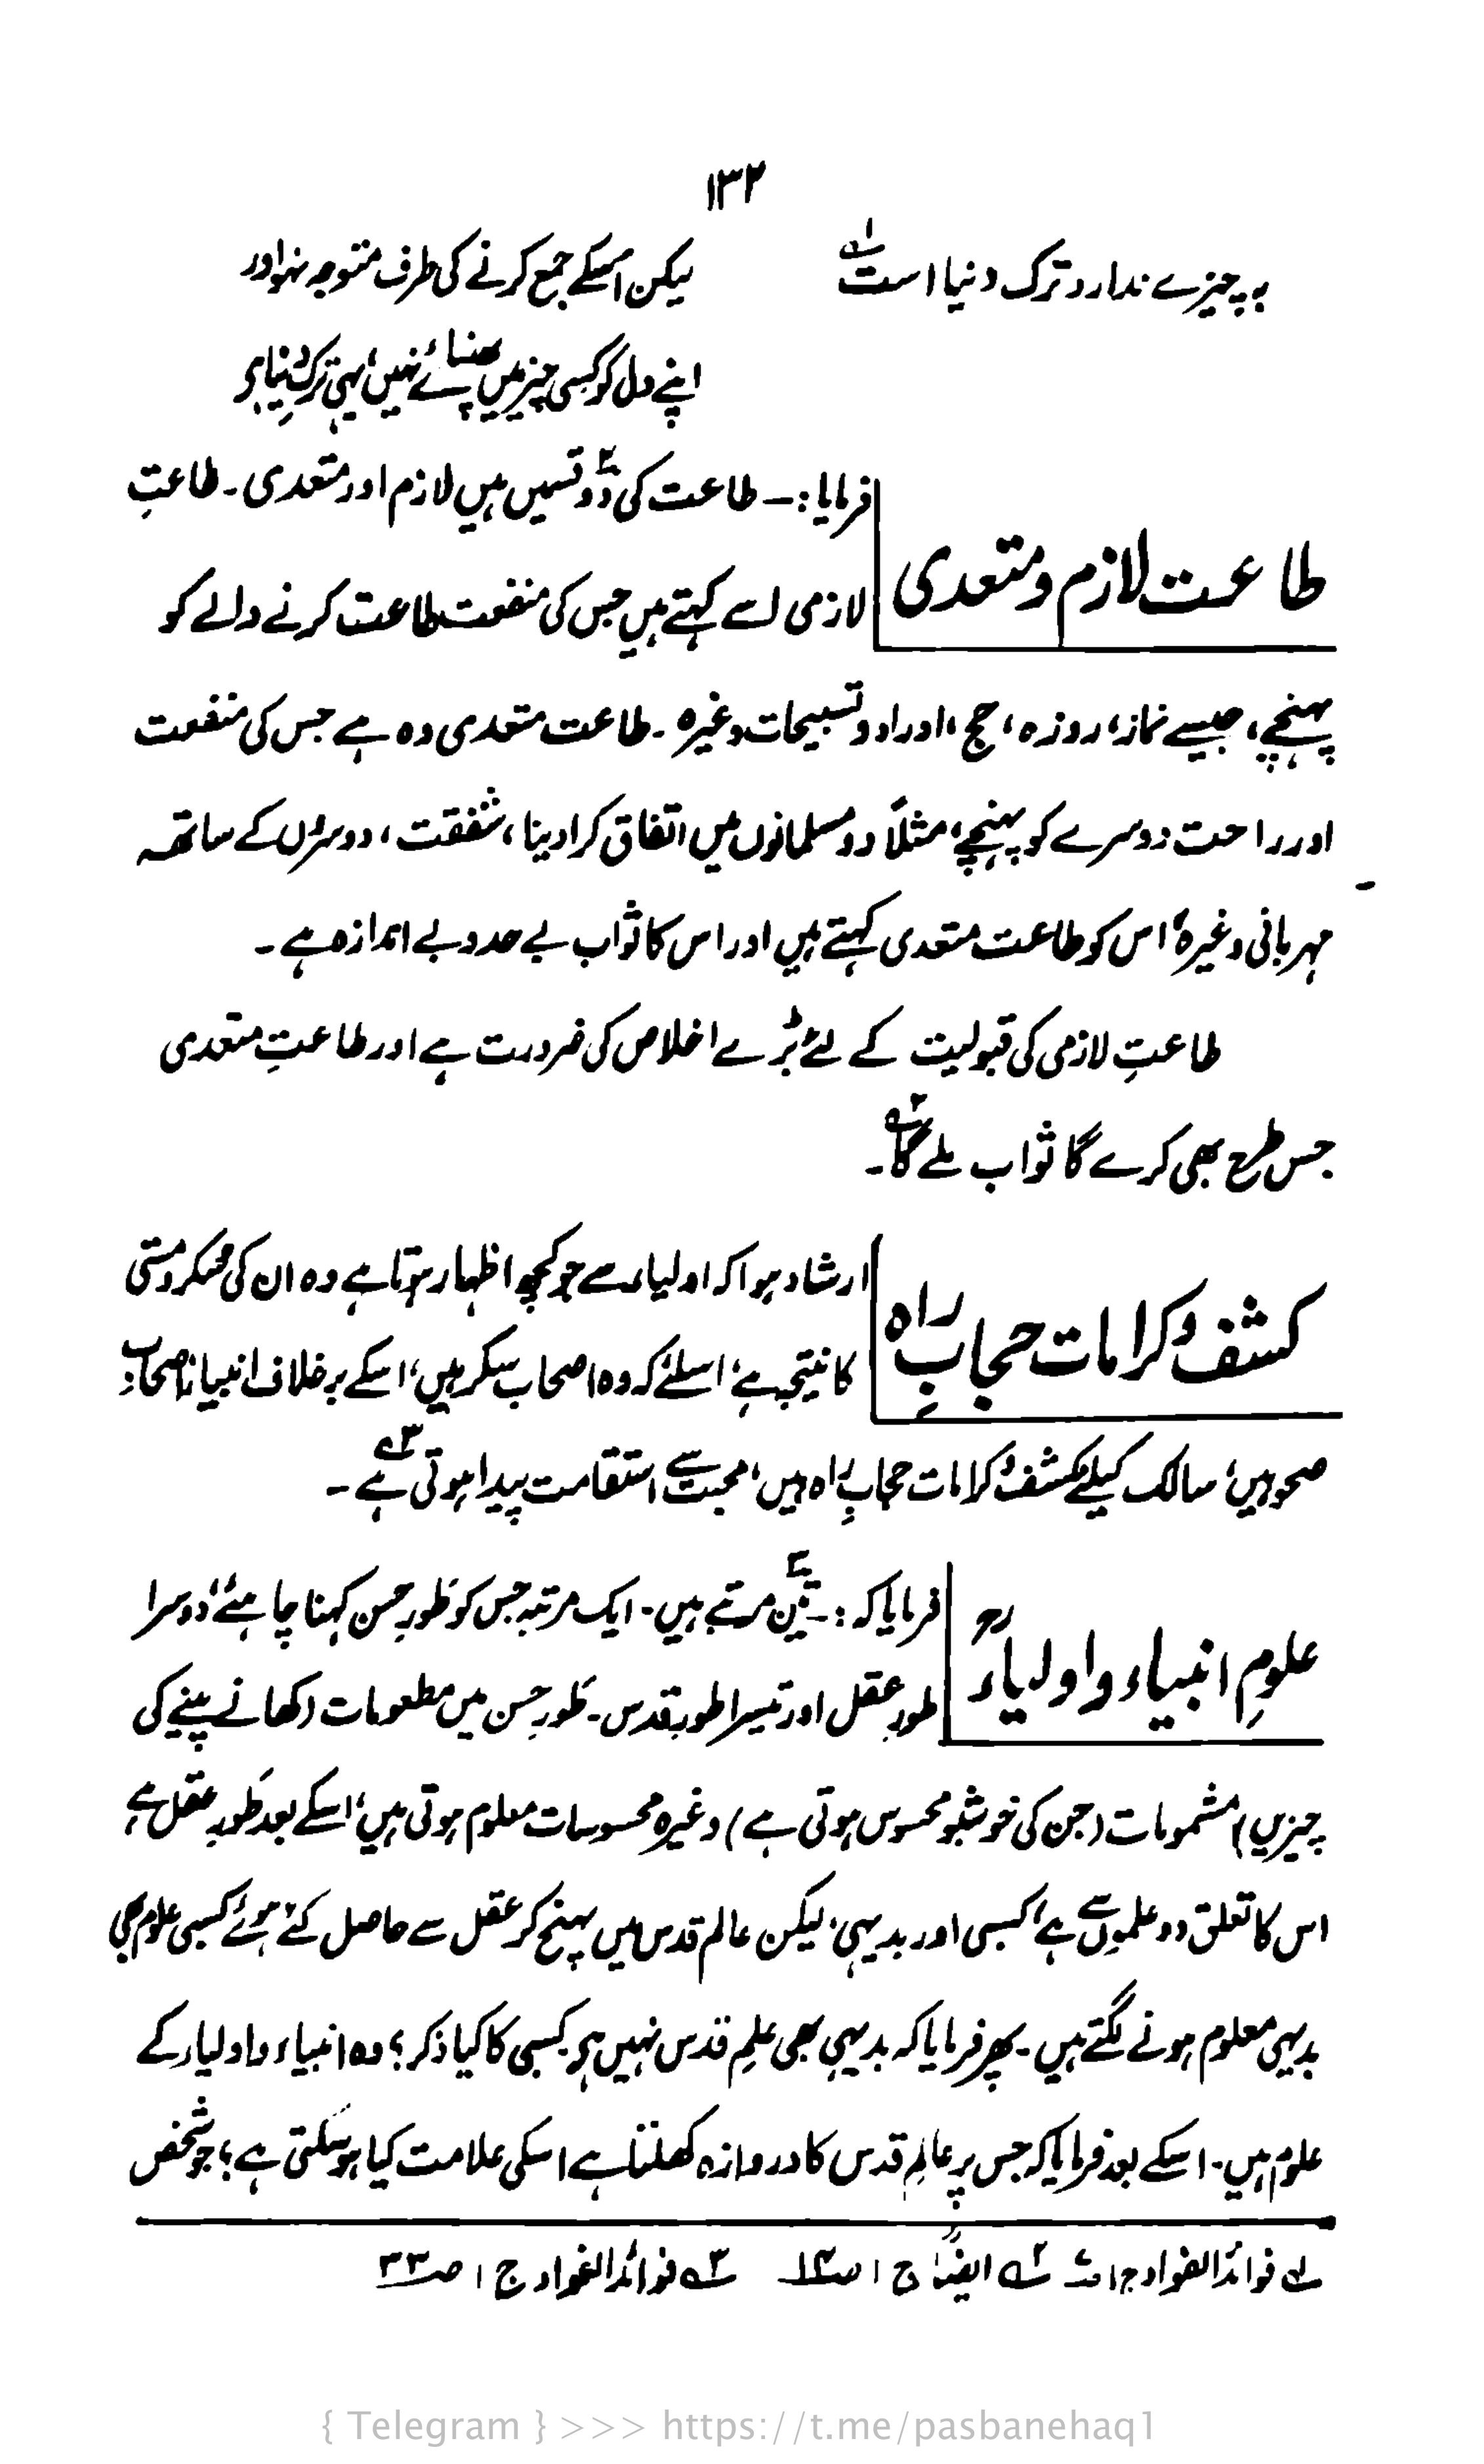 ۱۳۲
بہ چیزے ندارد ترک دنیا است ۱؎
لیکن اسکے جمع کرنے کی طرف متوجہ نہو اور
اپنے دل کو کسی چیز میں پھنسائے نہیں، یہی ترکِ دنیا ہے
طاعت لازم و متعدی
فرمایا :۔ طاعت کی دو قسمیں ہیں لازم اور متعدی۔ طاعتِ
لازمی اسے کہتے ہیں جس کی منفعت طاعت کرنے والے کو
پہنچے، جیسے نماز، روزہ، حج، اوراد و تسبیحات وغیرہ۔ طاعت متعدی وہ ہے جس کی منفعت
اور راحت دوسرے کو پہنچے، مثلاً دو مسلمانوں میں اتفاق کرا دینا، شفقت، دوسروں کے ساتھ
مہربانی وغیرہ، اس کو طاعت متعدی کہتے ہیں اور اس کا ثواب بے حد و بے اندازہ ہے۔
طاعتِ لازمی کی قبولیت کے لئے بڑے اخلاص کی ضرورت ہے اور طاعتِ متعدی
جس طرح بھی کرے گا ثواب ملے گا ۲؎۔
کشف و کرامات حجابِ راہ
ارشاد ہوا کہ اولیاء سے جو کچھ اظہار ہوتا ہے وہ ان کی سکر و مستی
کا نتیجہ ہے، اسلئے کہ وہ اصحاب سکر ہیں، اسکے برخلاف انبیاء اصحابِ
صحو ہیں، سالک کیلئے کشف و کرامات حجابِ راہ ہیں، محبت سے استقامت پیدا ہوتی ہے ۳؎۔
علومِ انبیاء و اولیاءؒ
فرمایا کہ :۔ تین مرتبے ہیں۔ ایک مرتبہ جس کو طَورِ حسن کہنا چاہئے، دوسرا
طورِ عقل اور تیسرا طورِ قدس۔ طَورِ حِسن میں مطعومات (کھانے پینے کی
چیزیں) مشمومات (جن کی خوشبو محسوس ہوتی ہے) وغیرہ محسوسات معلوم ہوتی ہیں، اسکے بعد طَورِ عقل ہے
اس کا تعلق دو علموں سے ہے، کسبی اور بدیہی، لیکن عالم قدس میں پہنچ کر عقل سے حاصل کئے ہوئے کسبی علوم بھی
بدیہی معلوم ہونے لگتے ہیں۔ پھر فرمایا کہ بدیہی بھی علمِ قدس نہیں ہے، کسبی کا کیا ذکر؟ وہ انبیاء و اولیاء کے
علوم ہیں۔ اسکے بعد فرمایا کہ جس پر عالمِ قدس کا دروازہ کھلتا ہے اسکی علامت کیا ہو سکتی ہے؟ جو شخص
۱؎ فوائد الفواد ج۱ ۲؎ ایضاً ج ۱ ص۱۴ ۳؎ فوائد الفواد ج ۱ ص۳۳
{ Telegram } >>> https://t.me/pasbanehaq1